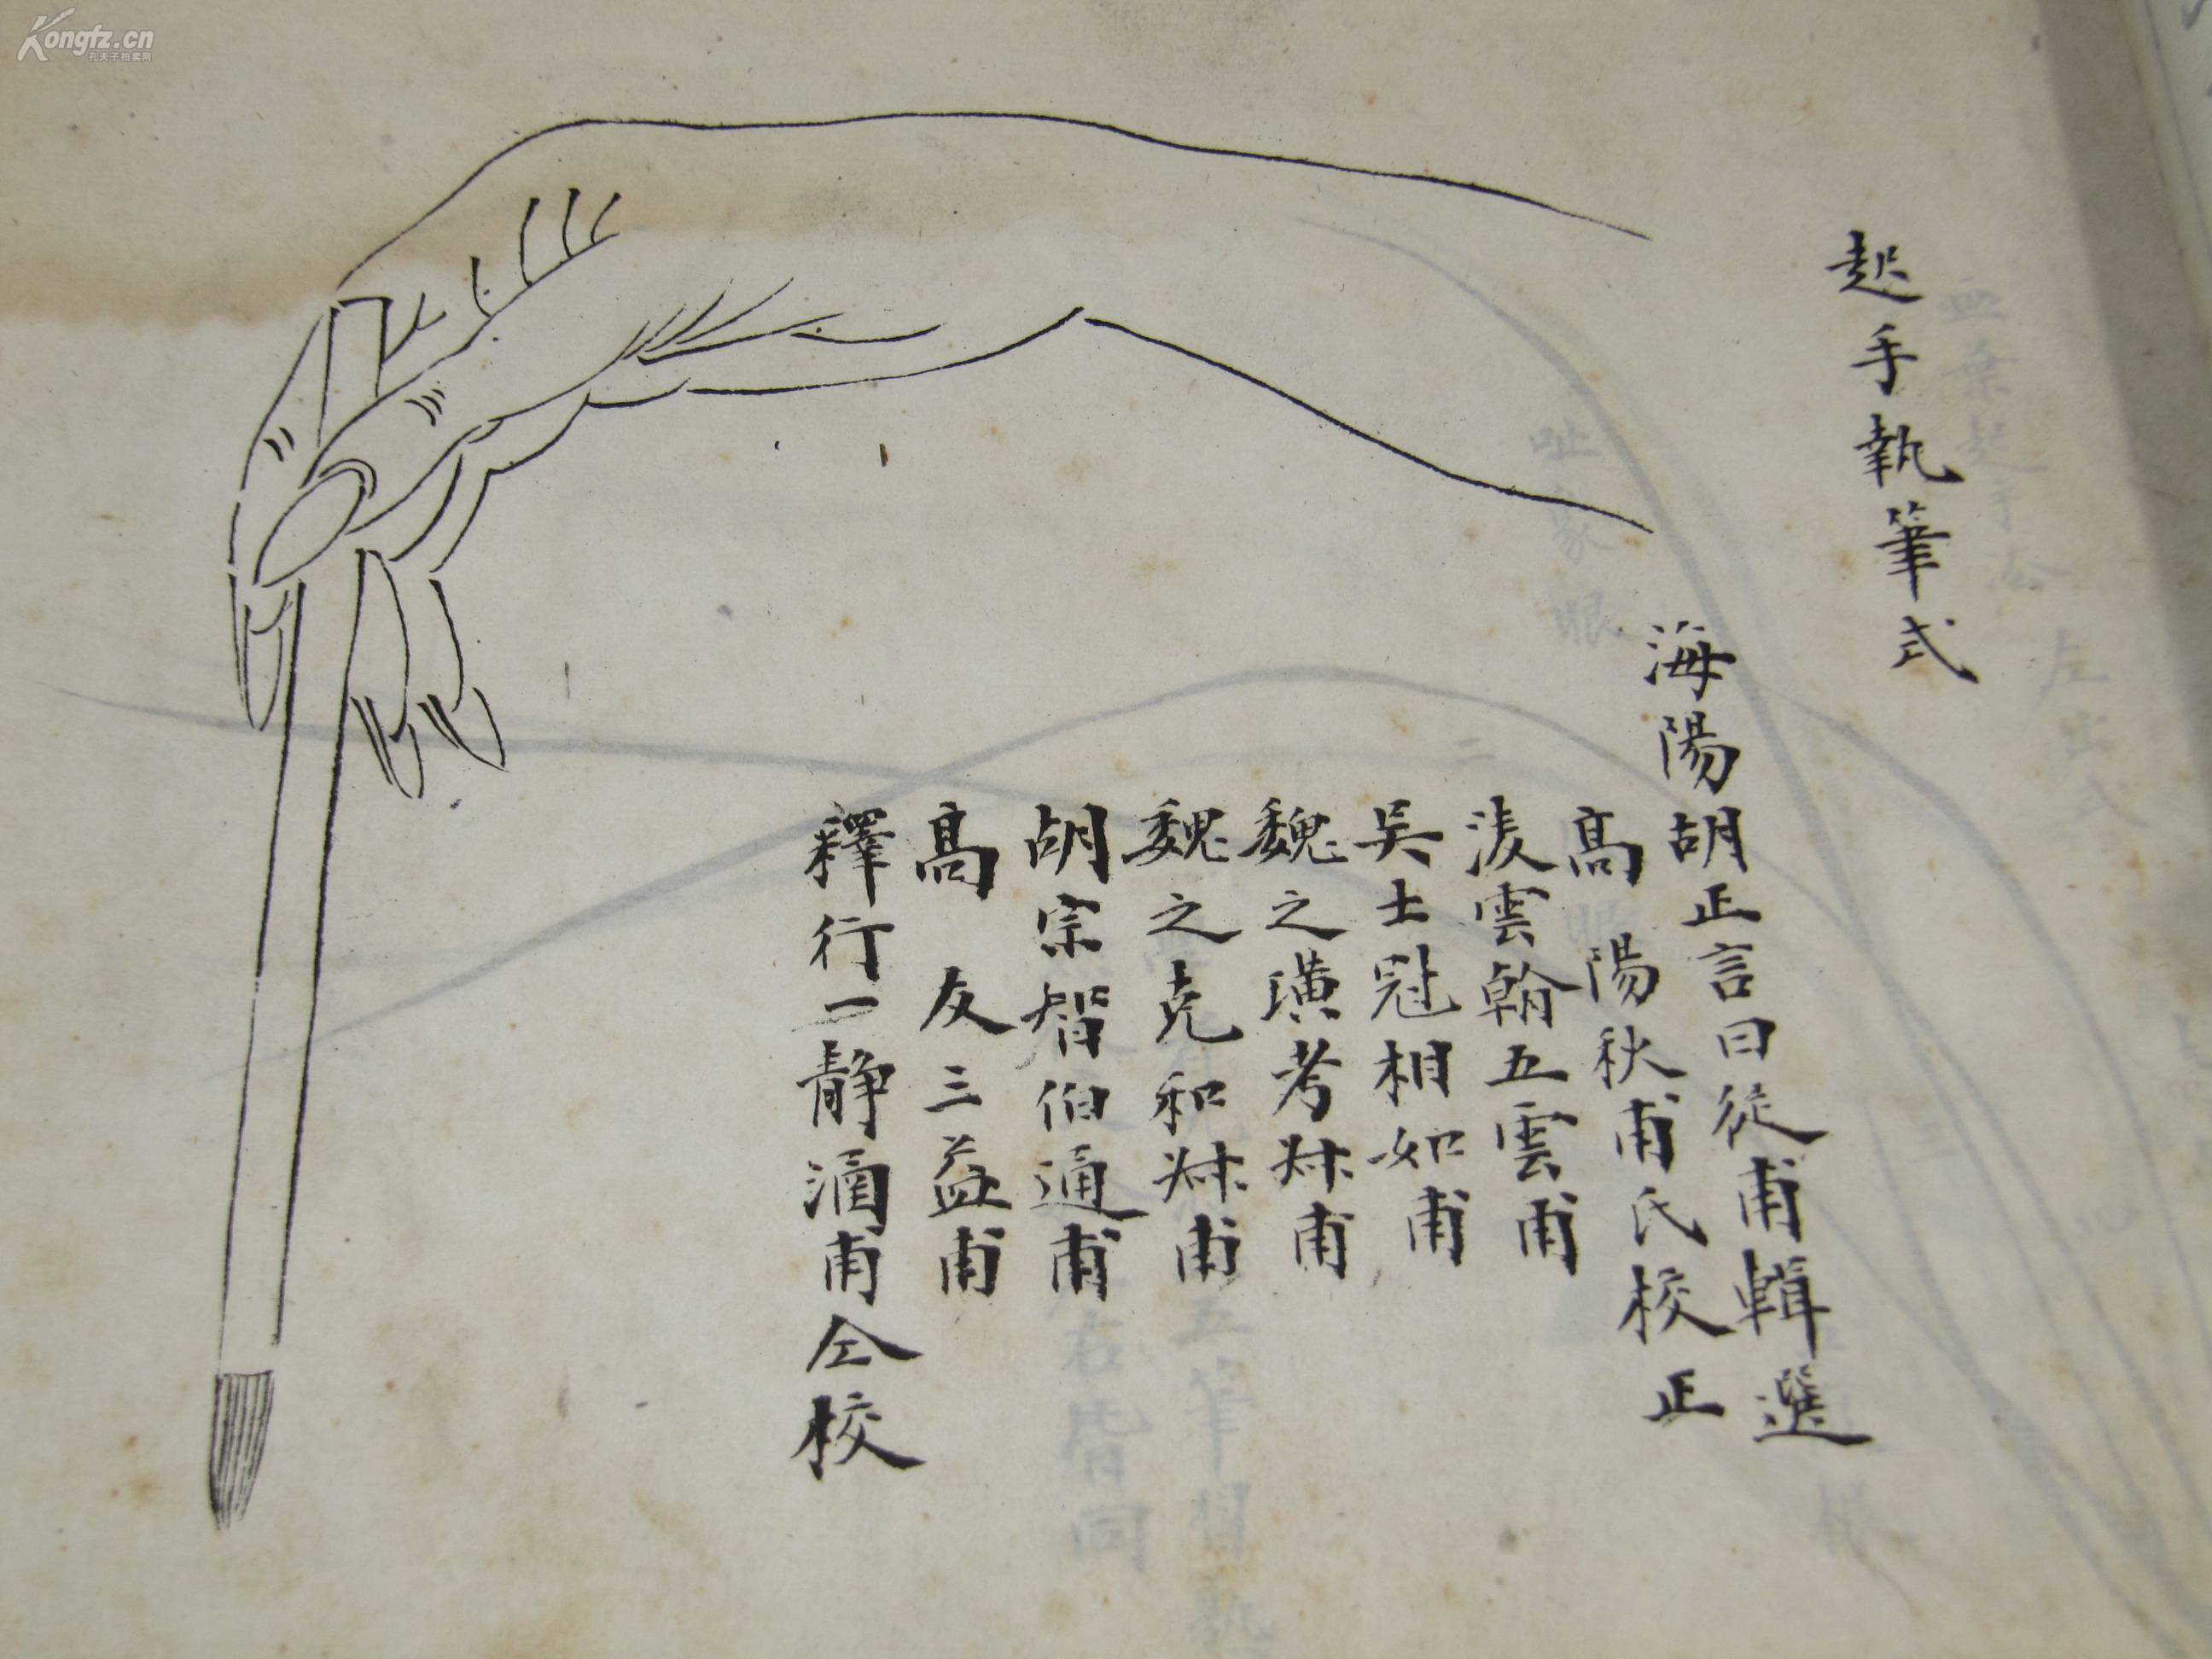 起手執筆式
海陽胡正言曰從甫輯選
高陽秋甫氏校正
凌雲翰五雲甫
吴士冠相如甫
魏之璜考叔甫
魏之克和叔甫
胡宗智伯通甫
高友三益甫
釋行一静涵甫仝校
Kongfz.cn
孔夫子拍卖网